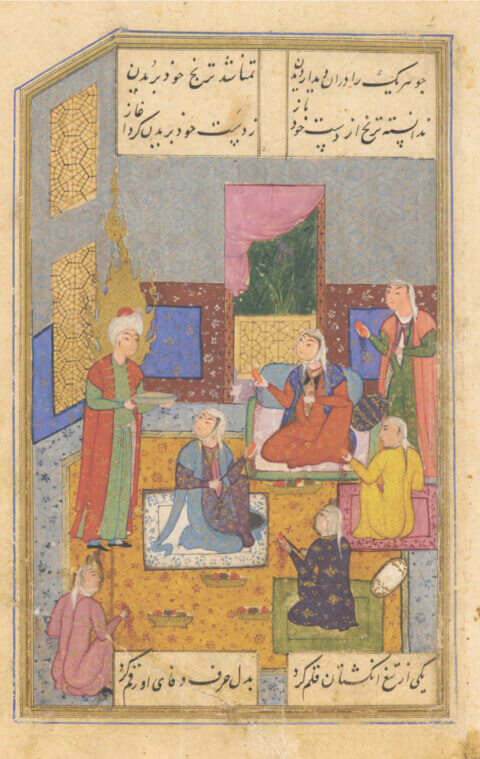 جو هریک را دران دیدار دیدن
تمنا شد ترنج خود بریدن
ندانسته ترنج از دست خود باز
ز دست خود بریدن کرد آغاز
یکی از تیغ انگشتان قلم کرد
بدل حرف وفای او رقم کرد